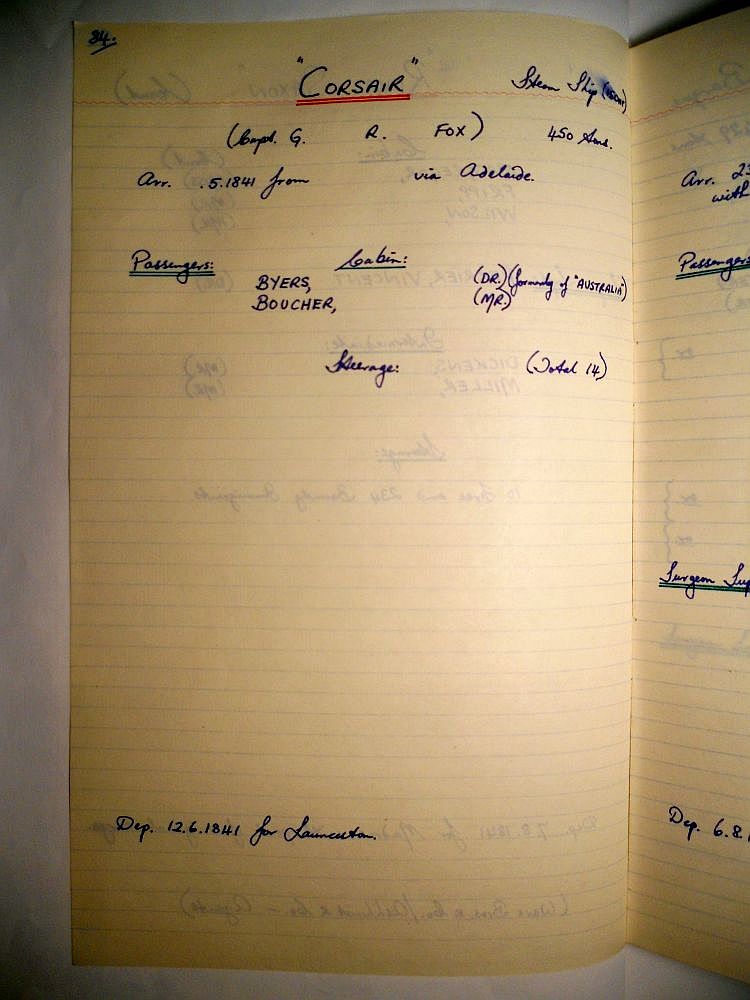 34.
"CORSAIR" Steam Ship
(Capt. G. R. FOX) 450 tons.
Arr. .5.1841 from via Adelaide.
Passengers: Cabin:
BYERS, (DR.) (formerly of "AUSTRALIA")
BOUCHER, (MR.)
Steerage: (Total 14)
Dep. 12.6.1841 for Launceston.
Arr. 23
with
Passengers:
Surgeon Sup
Dep. 6.8.1